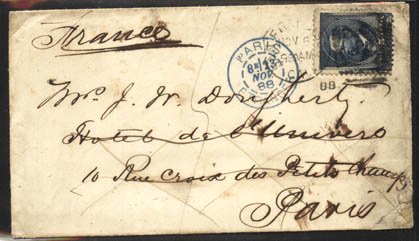 France
PARIS
NOV
88
88
Mrs. J. W. Dougherty
Hotel de l'Univers
10 Rue Croix des Petits Champs
Paris